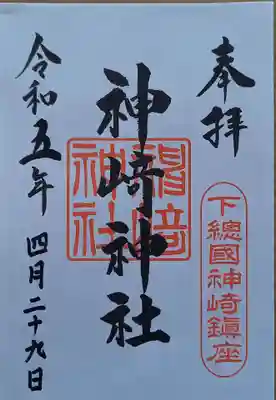 奉拝
下總國神崎鎮座
神崎神社
神崎神社
令和五年 四月二十九日